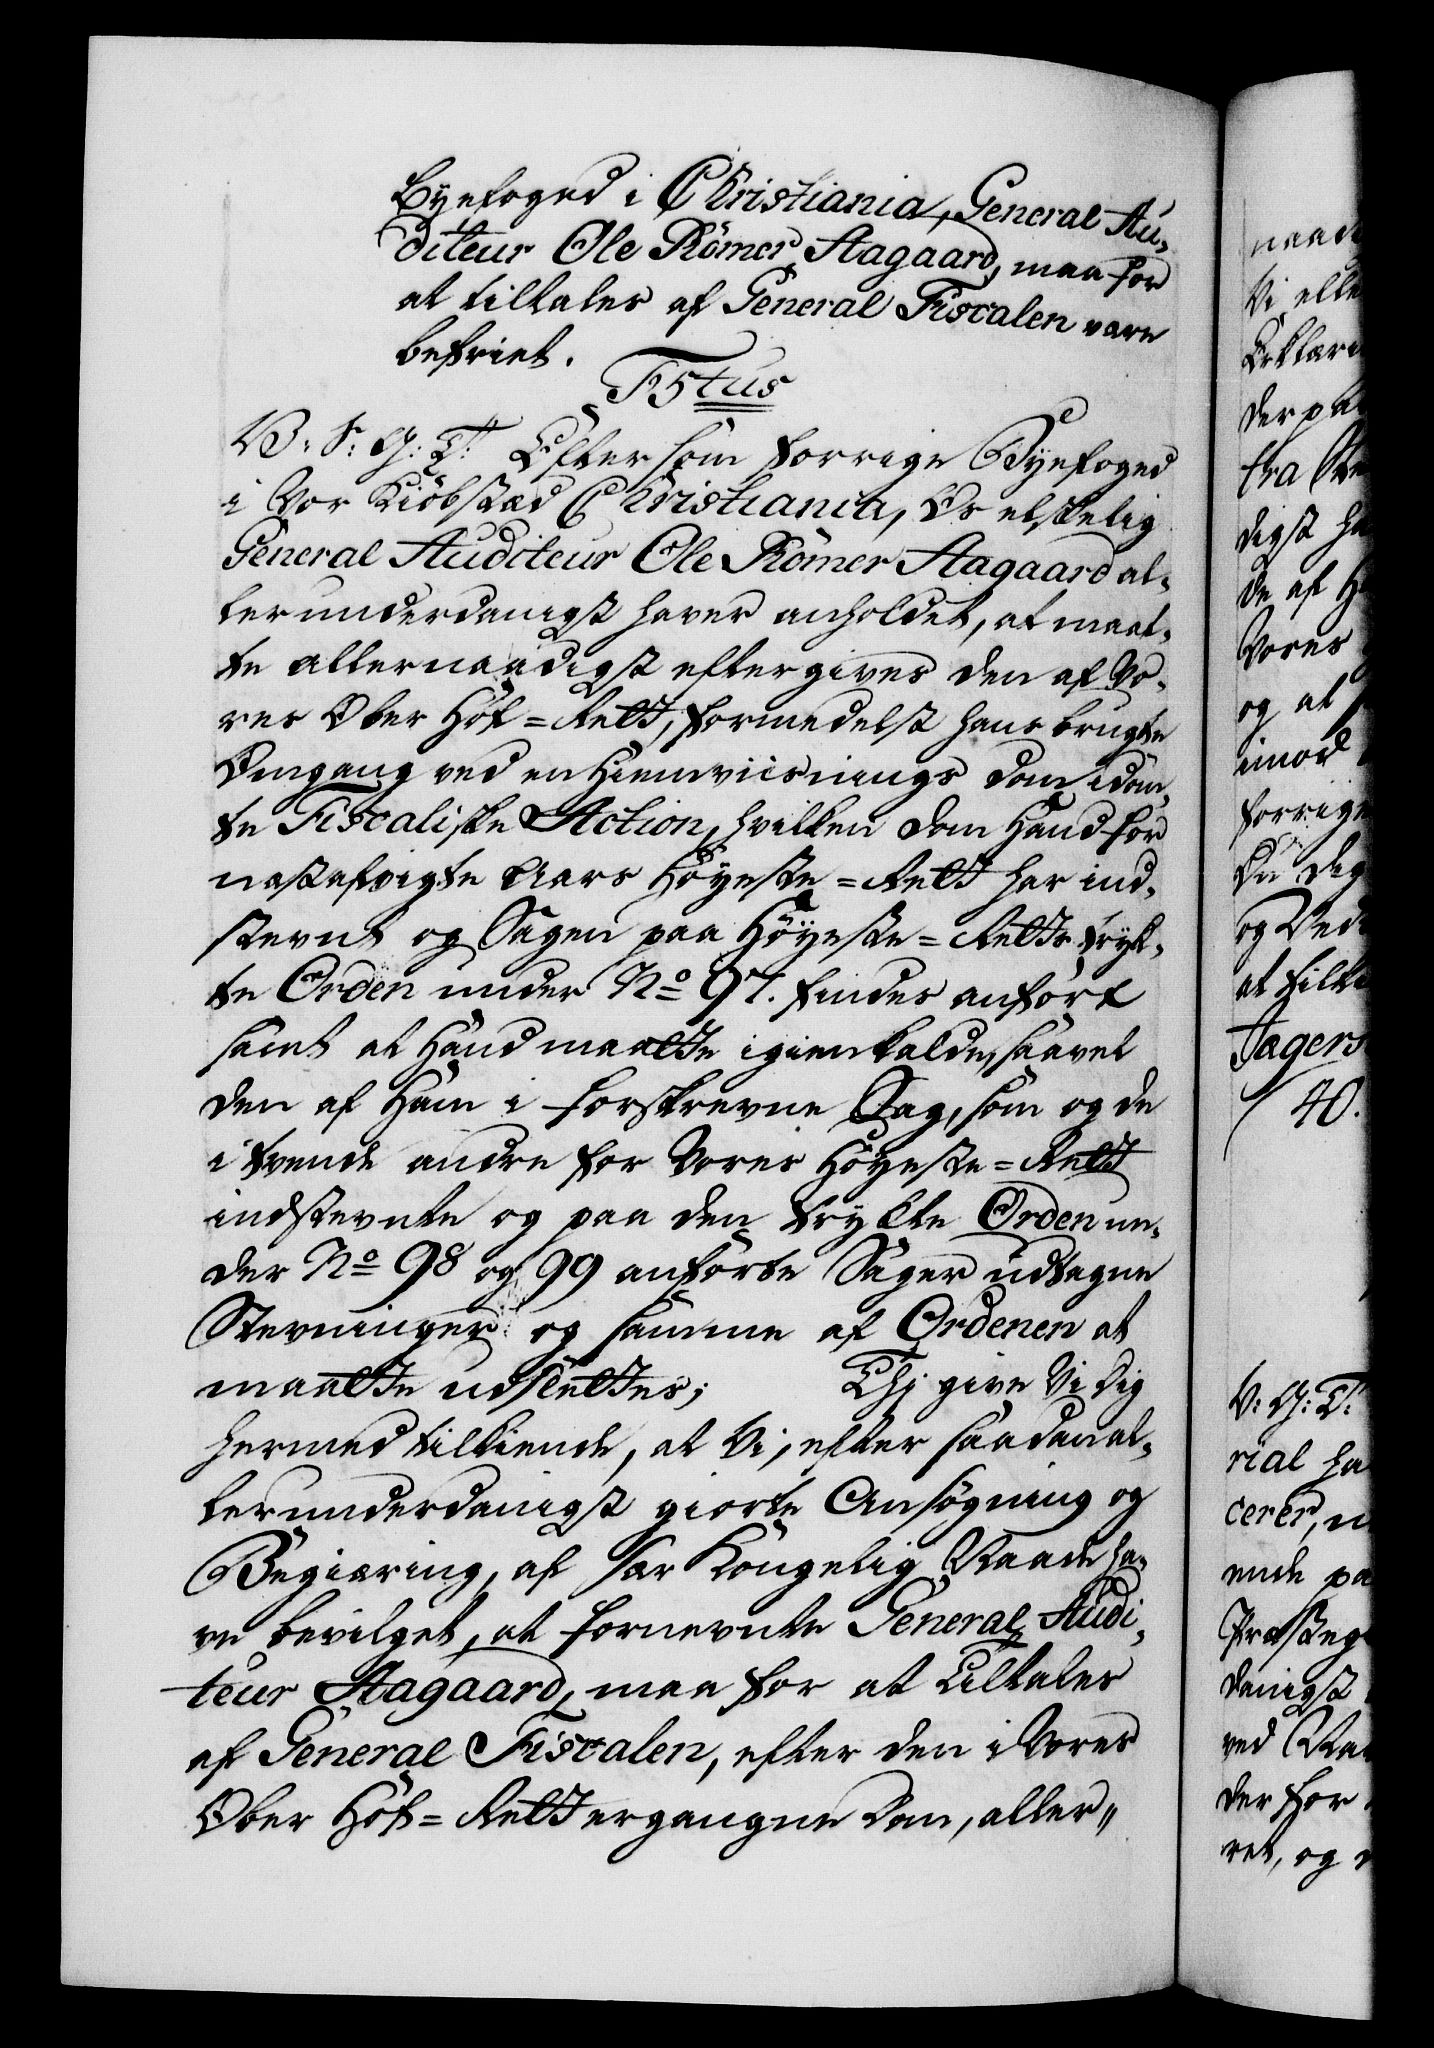 Byefoged i Christiania, General Au-
diteur Ole Römer Aagaard, maa for
at tiltales af General Fiscalen være
befriet.
F5tus
V: S: G: T: Eftersom forrige Byefoged
i Vor Kiöbstæd Christiania, Os elskelig
General Auditeur Ole Römer Aagaard al-
lerunderdanigst haver anholdet, at maat-
te allernaadigst eftergives den af Vo-
res Ober Hof-Rett, formedelst hans brugte
Omgang ved en Hiemviisnings Dom idöm-
te Fiscaliske Action, hvilken Dom Hand for
næstafvigte Aars Höyeste-Rett har ind-
stevnt og Sagen paa Höyeste-Retts tryk-
te Orden under No 97. findes anfört
samt at Hand maatte igienkalde, saavel
den af Ham i forskrevne Sag, som og de
i tvende andre for Vores Höyeste-Rett
indstevnte og paa den trykte Orden un-
der No 98 og 99 anförte Sager udtagne
Stevninger og samme af Ordenen at
maatte udslettes; Thj give Vi dig
hermed tilkiende, at Vi, efter saadan al-
lerunderdanigst giorte Ansögning og
Begiæring, af sær Kongelig Naade ha-
ve bevilget, at fornevnte General Audi-
teur Aagaard, maa for at tiltales
af General Fiscalen, efter den i Vores
Ober Hof-Rett ergangne Dom, aller-
naad
Vi elle
Erklæri
der paa
fra Ste
digst ha
de af H
Vores
og at
imod
forrige
Du dig
og Ved
at tilk
Jagers
40.
V: G: T:
rial ha
cerer, n
ende pa
danigst
ved
der for
ret, og